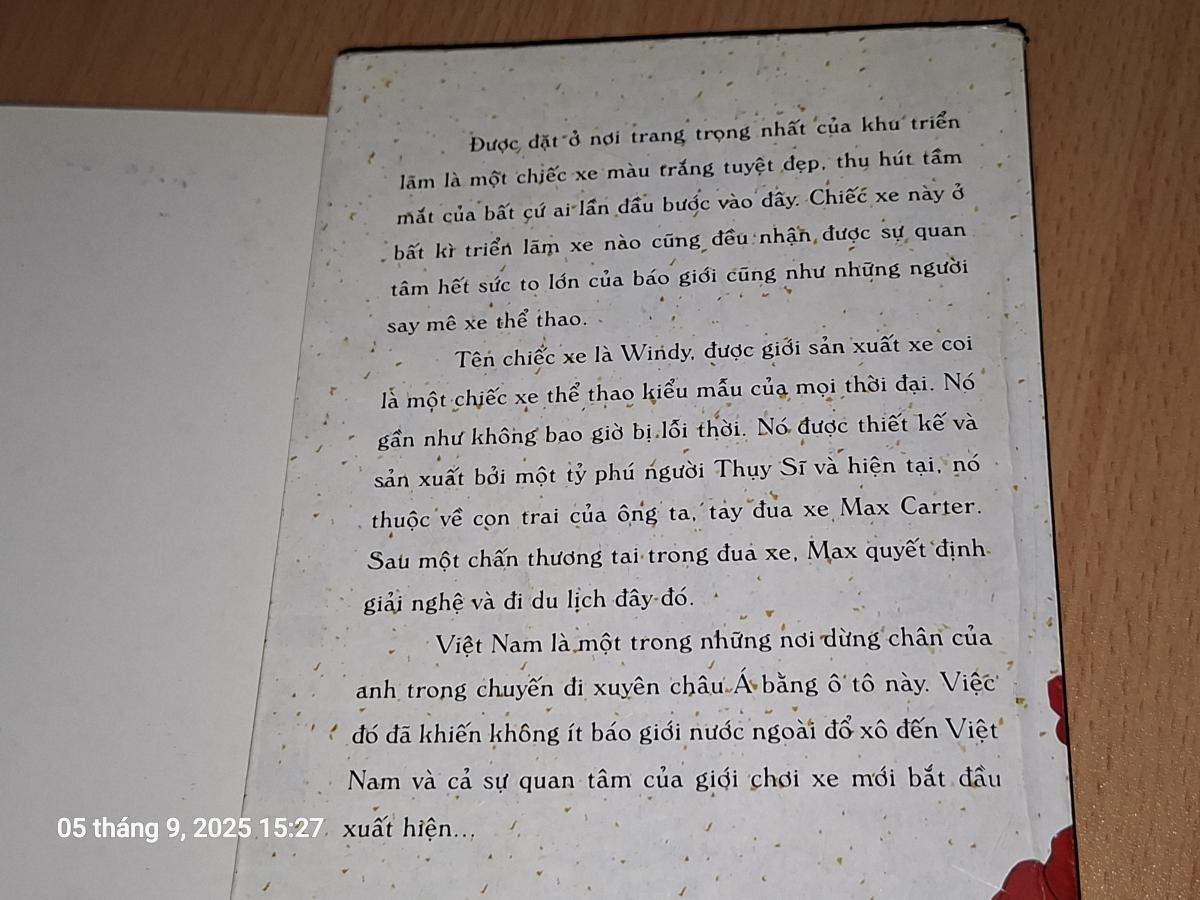 Được đặt ở nơi trang trọng nhất của khu triển
lãm là một chiếc xe màu trắng tuyệt đẹp, thu hút tầm
mắt của bất cứ ai lần đầu bước vào đây. Chiếc xe này ở
bất kì triển lãm xe nào cũng đều nhận được sự quan
tâm hết sức to lớn của báo giới cũng như những người
say mê xe thể thao.
Tên chiếc xe là Windy, được giới sản xuất xe coi
là một chiếc xe thể thao kiểu mẫu của mọi thời đại. Nó
gần như không bao giờ bị lỗi thời. Nó được thiết kế và
sản xuất bởi một tỷ phú người Thụy Sĩ và hiện tại, nó
thuộc về con trai của ông ta, tay đua xe Max Carter.
Sau một chấn thương tai trong đua xe, Max quyết định
giải nghệ và đi du lịch đây đó.
Việt Nam là một trong những nơi dừng chân của
anh trong chuyến đi xuyên châu Á bằng ô tô này. Việc
đó đã khiến không ít báo giới nước ngoài đổ xô đến Việt
Nam và cả sự quan tâm của giới chơi xe mới bắt đầu
xuất hiện...
05 tháng 9, 2025 15:27